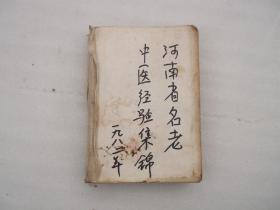 河南省名老
中医经验集锦
一九八二年